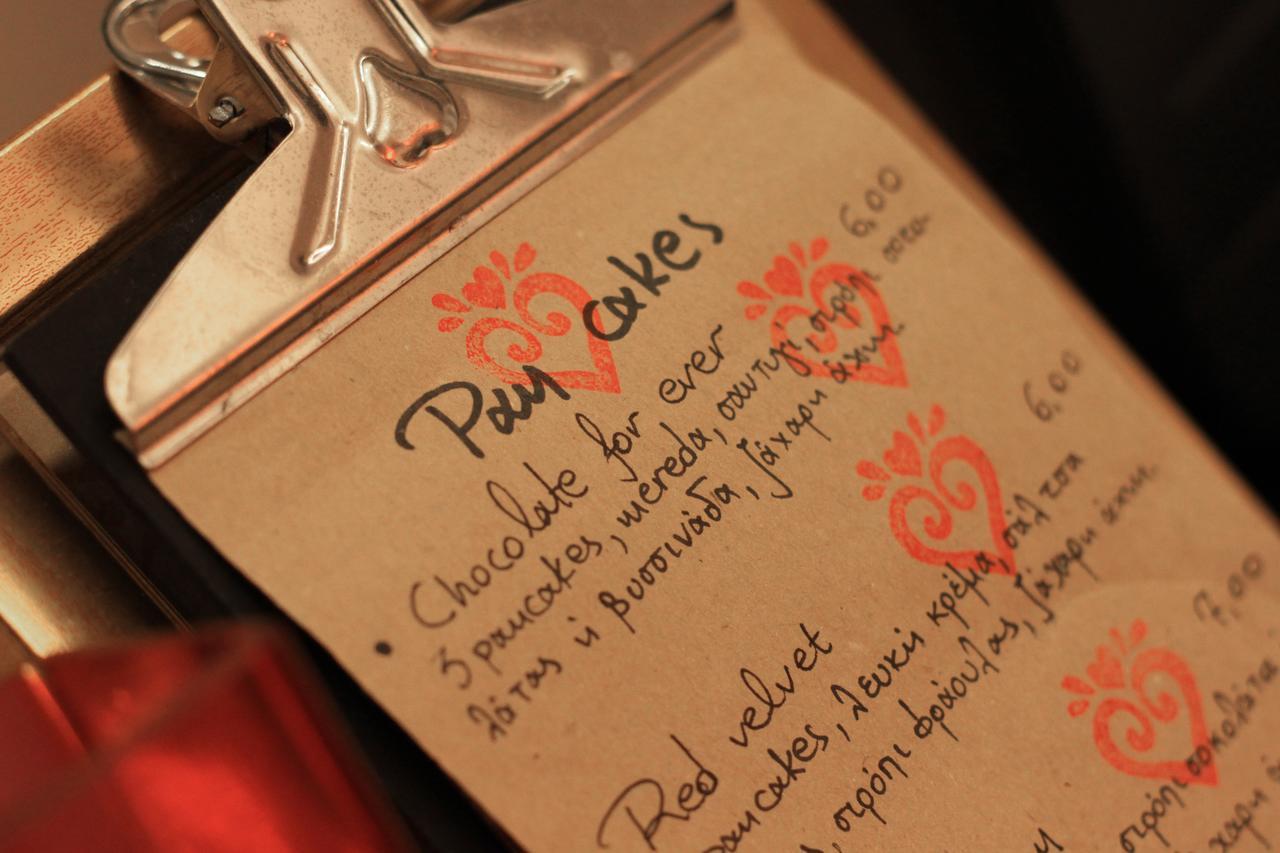 Pancakes
• Chocolate for ever 6,00
3 pancakes, mereda, σαντιγί, σιρόπι σοκο
λάτας ή βυσσινάδα, ζάχαρη άχνη.
Red velvet 6,00
pancakes, λευκή κρέμα, σάλτσα
σιρόπι φράουλας, ζάχαρη άχνη.
7,00
σιρόπι σοκολάτα